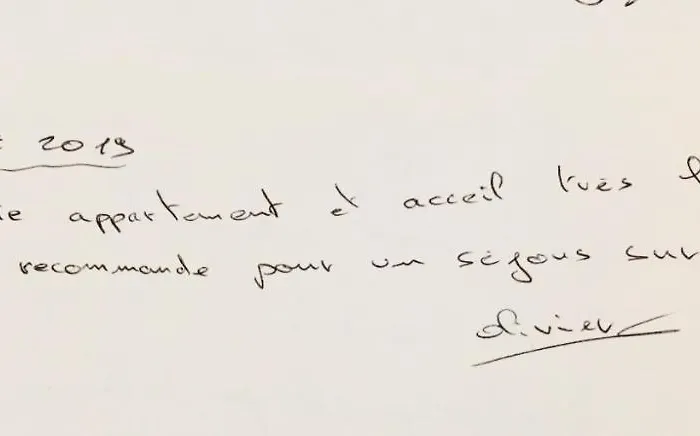 2019
appartement et acceil très
recommande pour un séjous sur
olivier